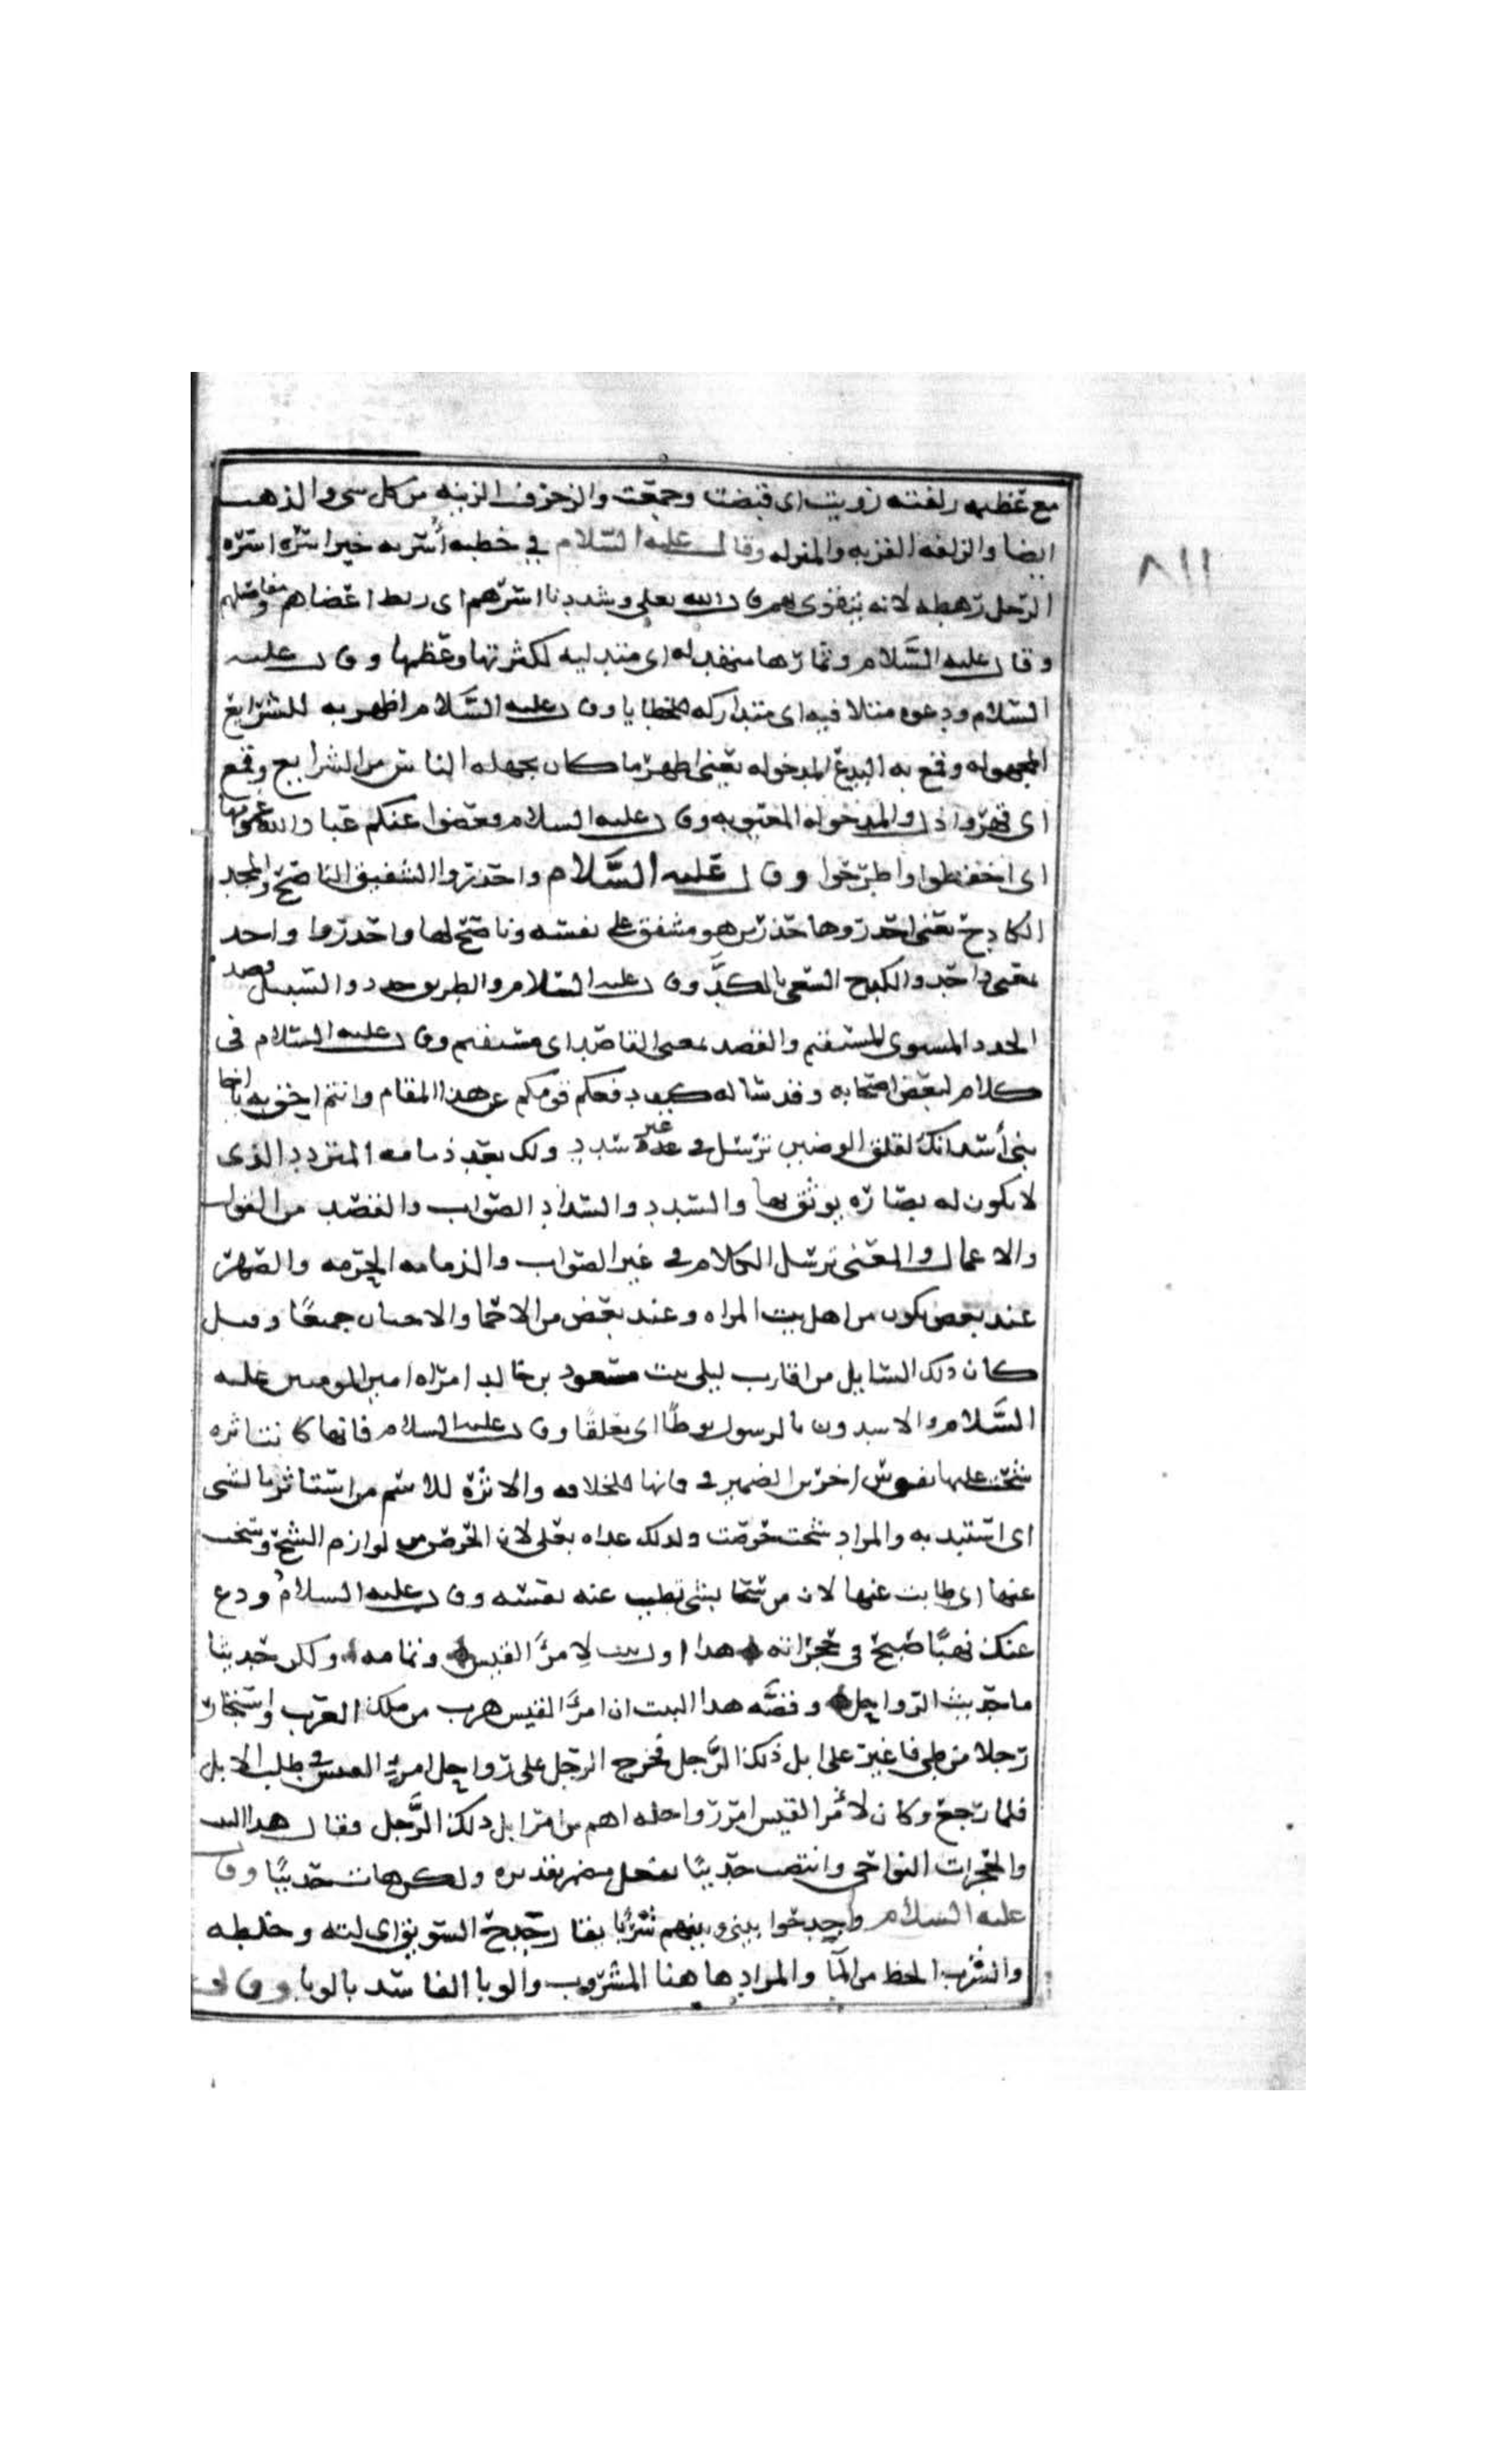 مع عظيم زلفته زويت اى قبضت وجمعت والزخرف الزينه من كل سى والذهب
ايضا والزلفه القربه والمنزله وقال عليه السلام في خطبه أسرته خير اسره اسره
الرجل رهطه لانه يتقوى بهم قال الله تعلى وشددنا اسرهم اى ربط اعضاهم ومفاصلهم
وقال عليه السلام وثمارها متهدله اى متدليه لكثرتها وعظمها وقال عليه
السلام ودعوه متلافيه اى متداركه للخطايا وقال عليه السلام اظهر به للشرايع
المجهوله وقمع به البدع المدخوله يعنى اظهر ما كان يجهله الناس من الشرايع وقمع
اى قهر واذل والمدخوله المعيوبه وقال عليه السلام فغضوا عنكم عباد الله غمومها
اى اخفظوا واطرحوا وقال عليه السلام واحذروا الشفيق الناصح والمجد
الكادح يعنى احذروها حذر من هو مشفق على نفسه وناصح لها واحذروا واحد
بمعنى واحد والكدح السعى بالكد وقال عليه السلام والطريق جدد والسبيل قصد
الجدد المستوى المستقيم والقصد بمعنى القاصد اى مستقيم وقال عليه السلام فى
كلام لبعض اصحابه وقد ساله كيف دفعكم قومكم عن هذا المقام وانتم احق به يا اخا
بنى أسد انك لقلق الوضين ترسل فى غير سدد ولك بعد ذمامه المتردد الذى
لا يكون له بصاره يوثق بها والسدد والسداد الصواب والقصد من القول
والاعمال والمعنى ترسل الكلام فى غير الصواب والذمامه الحرمه والصهر
عند بعض يكون من اهل بيت المراه وعند بعض من الاحما والاختان جميعا وقيل
كان ذلك السايل من اقارب ليلى بنت مسعود بن خالد امراه امير المومنين عليه
السلام والاشدون بالرسول نوطا اى تعلقا وقال عليه السلام فانها كانت اثره
شحت عليها نفوس اخرين الضمير فى فانها للخلافه والاثره للاسم من استاثر بالشى
اى استبد به والمراد شحت حرصت ولذلك عداه بعلى لان الحرص من لوازم الشح وسخت
عنها اى طابت عنها لان من سخا بشى تطيب عنه نفسه وقال عليه السلام ودع
عنك نهبا صيح فى حجراته هذا اول بيت لامرؤ القيس وتمامه ولكن حديثا
ما حديث الرواحل وقصه هذا البيت ان امرؤ القيس هرب من ملك العرب واستجار
رجلا من طى فاغير على ابل ذلك الرجل فخرج الرجل على رواحل امرؤ القيس فى طلب الابل
فلما رجع وكان لامر القيس امر رواحله اهم من امر ابل ذلك الرجل فقال هذا البيت
والحجرات النواحى وانتصب حديثا بفعل مضمر تقديره ولكن هات حديثا وقال
عليه السلام وجدحوا بينى وبينهم شربا يقال جدح السويق اى لته وخلطه
والشرب الحظ من المآ والمراد هاهنا المشروب والوبا الفاسد بالوبا وقال
٨١١